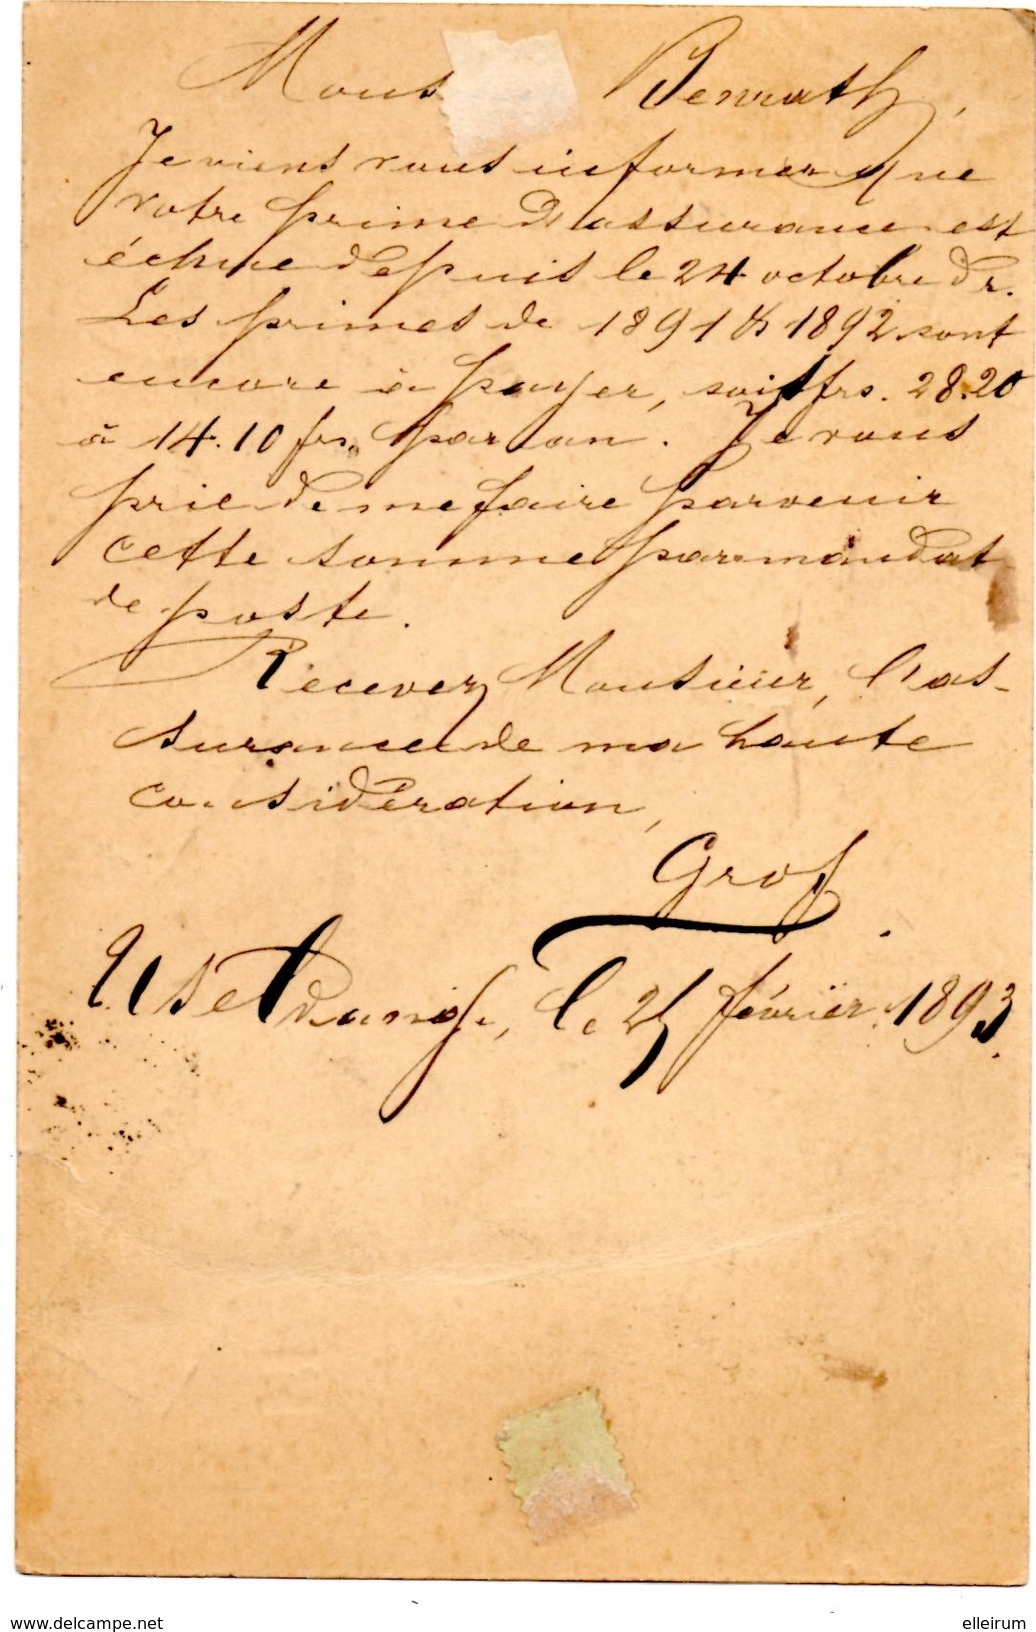 Mons Benrath,
Je viens vous informer que
votre prime d'assurance est
échue depuis le 24 octobre dr.
Les primes de 1891 & 1892 sont
encore à payer, soit frs. 28.20
à 14.10 frs. par an. Je vous
prie de me faire parvenir
cette somme par mandat
de poste.
Recevez Monsieur, l'as-
surance de ma haute
considération,
Grof
Useldange, le 25 février 1893.
www.delcampe.net
elleirum